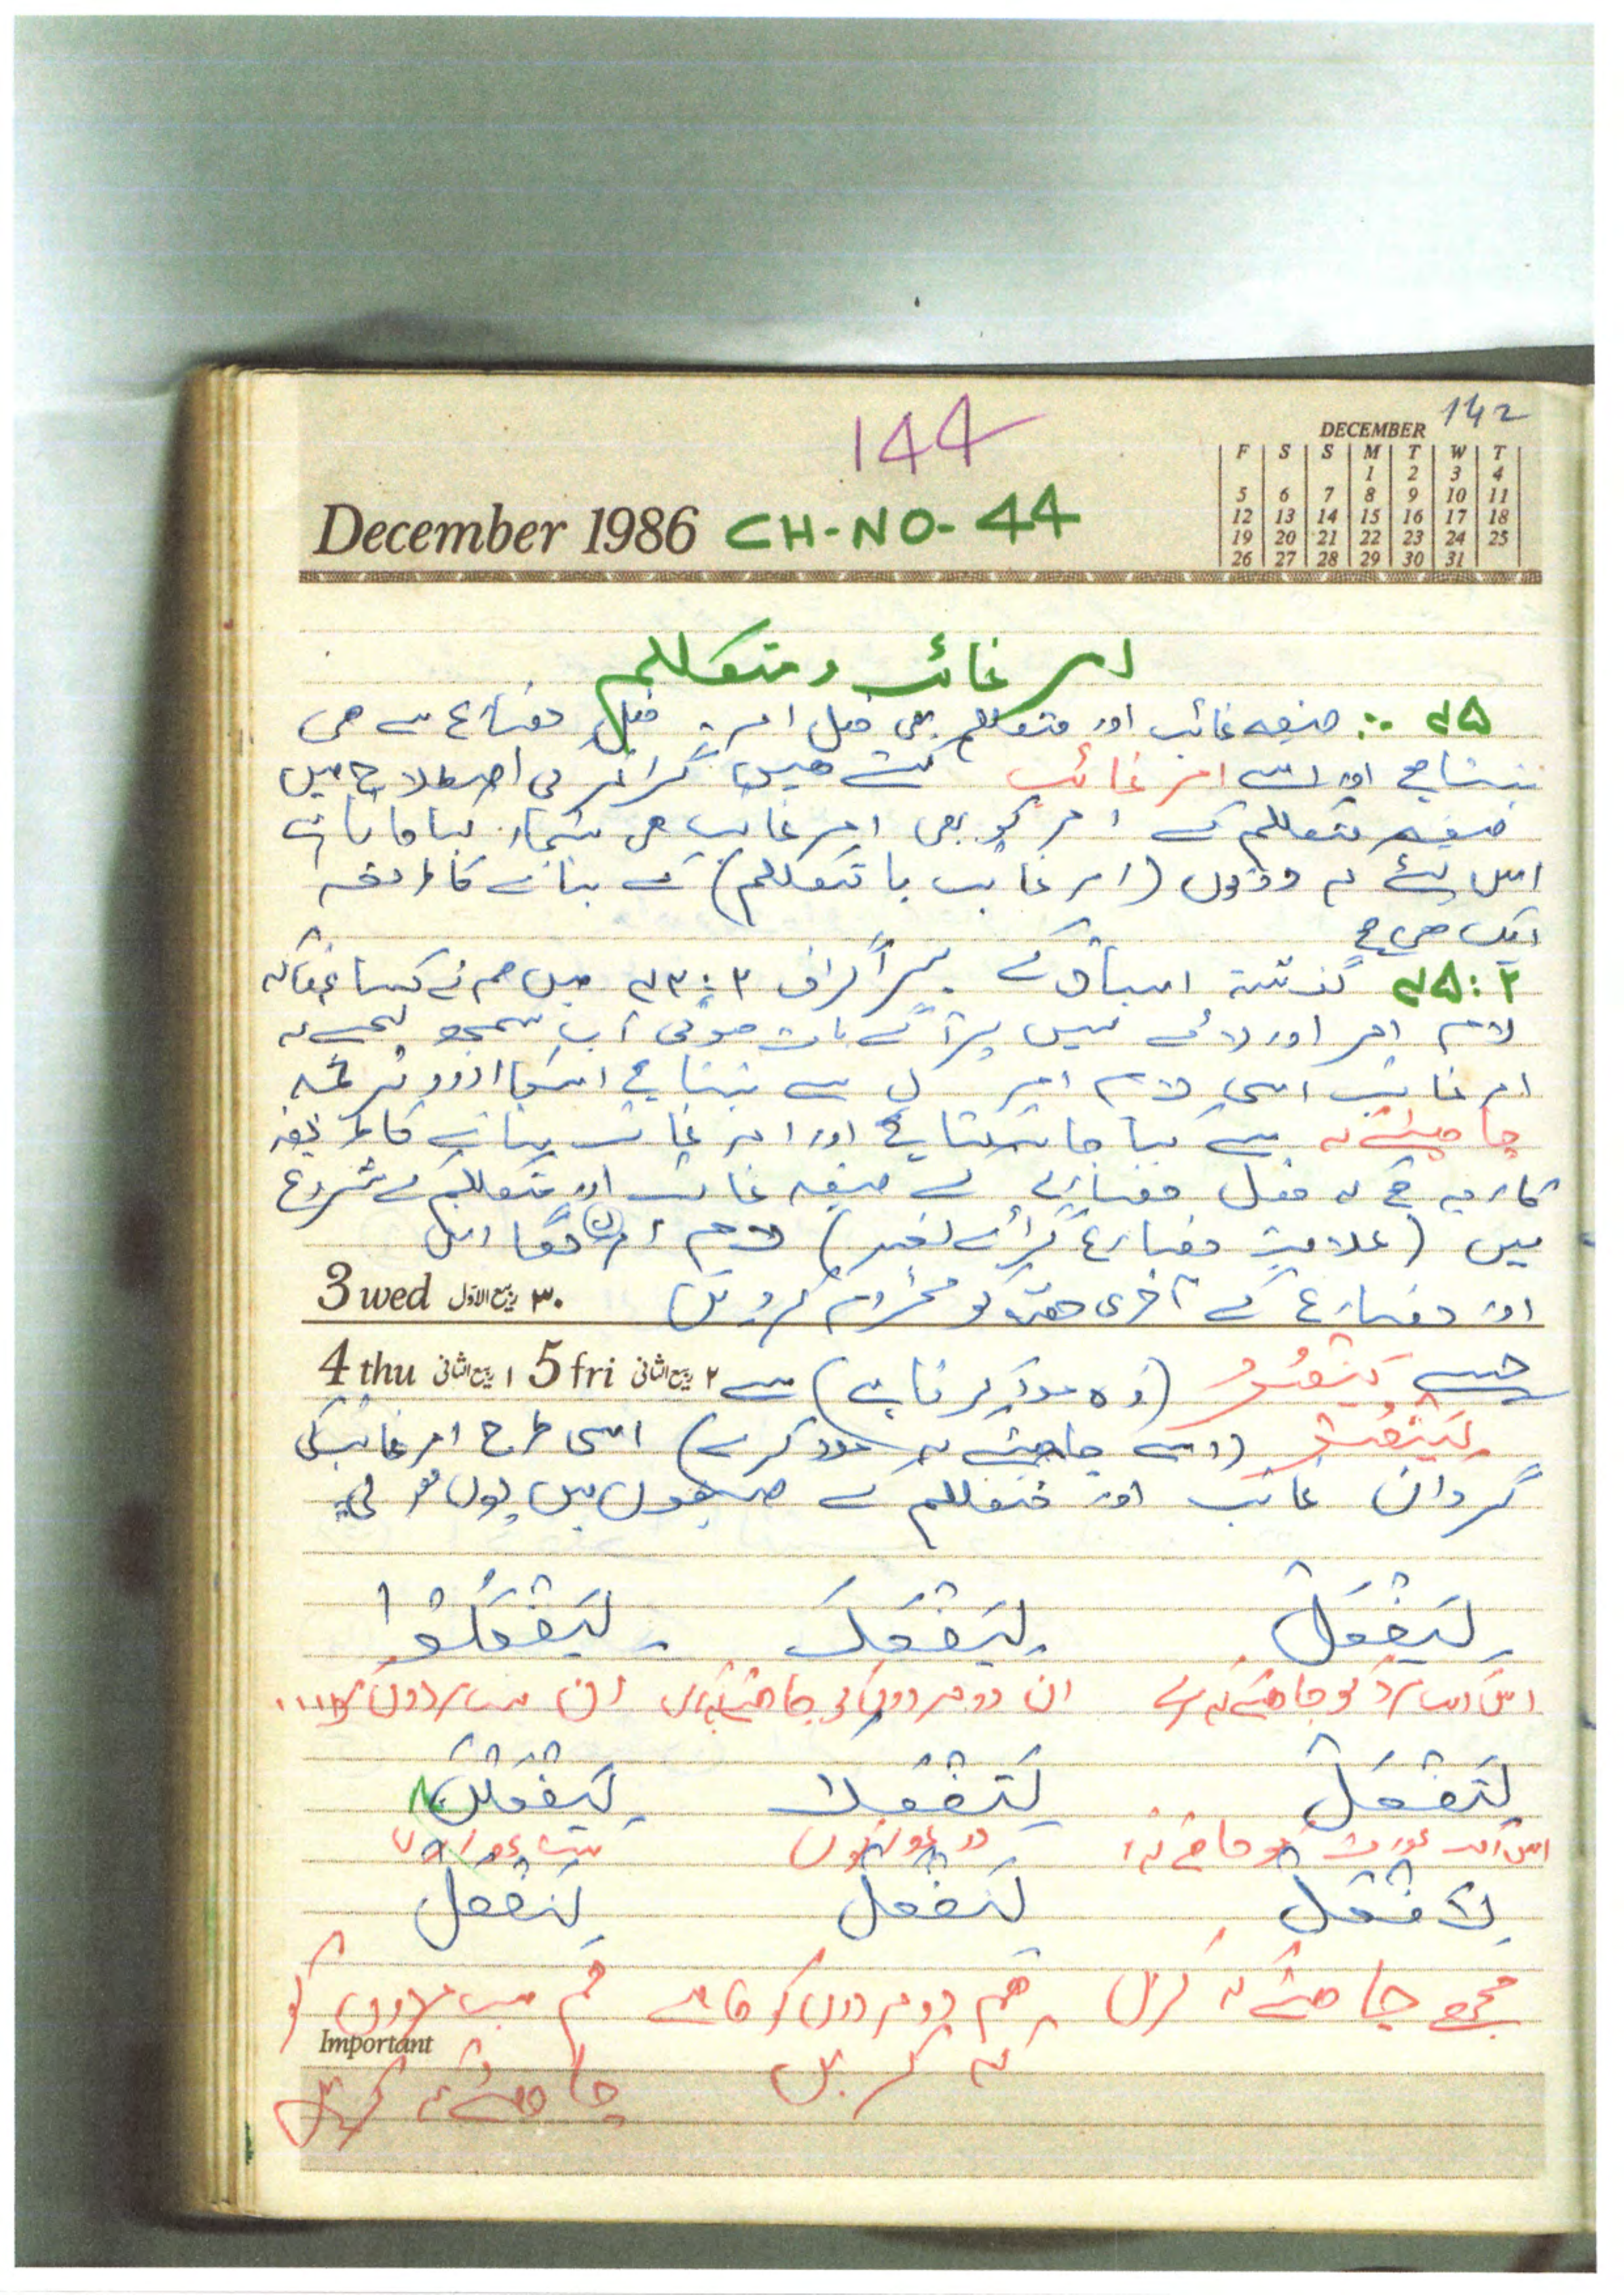 144
142
DECEMBER
F S S M T W T
1 2 3 4
5 6 7 8 9 10 11
12 13 14 15 16 17 18
19 20 21 22 23 24 25
26 27 28 29 30 31
December 1986 CH-NO-44
امر غائب و متکلم
صیغہ غائب اور متکلم میں فعل امر، فعل مضارع سے ہی
بنتا ہے اور اسے امر غائب کہتے ہیں گرامر کی اصطلاح میں
صیغہ متکلم کے امر کو بھی امر غائب میں شمار کیا جاتا ہے
اس لئے کہ دونوں (امر غائب یا متکلم) کے بنانے کا طریقہ
ایک ہی ہے
گذشتہ اسباق کے پیراگراف میں ہم نے کہا تھا کہ
لام امر اور لائے نہیں پر آگے بات ہوگی اب سمجھ لیجئے کہ
امر غائب اسی لام امر لِ سے بنتا ہے اسکا اردو ترجمہ
چاہیئے کہ سے کیا جا سکتا ہے اور امر غائب بنانے کا طریقہ
کار یہ ہے کہ فعل مضارع کے صیغہ غائب اور متکلم کے شروع
میں (علامت مضارع گرائے بغیر) لام امر (لِ) لگا دیں
اور مضارع کے آخری حصہ کو مجزوم کر دیں
3 wed ۳۰ ربیع الاوّل
4 thu ۱ ربیع الثانی 5 fri ۲ ربیع الثانی
جیسے یَنْصُرُ (وہ مدد کرتا ہے) سے
لِیَنْصُرْ (اسے چاہیئے کہ مدد کرے) اسی طرح امر غائب کی
گردان غائب اور متکلم کے صیغوں میں یوں ہو گی
لِیَفْعَلْ لِیَفْعَلَا لِیَفْعَلُوْا
اس ایک مرد کو چاہئے کہ کرے ان دو مردوں کو چاہئے کہ ان سب مردوں کو
لِتَفْعَلْ لِتَفْعَلَا لِیَفْعَلْنَ
اس ایک عورت کو چاہئے کہ دو عورتوں سب عورتوں
لِاَفْعَلْ لِنَفْعَلْ لِنَفْعَلْ
مجھے چاہئے کہ کروں ہم دو مردوں کو چاہئے ہم سب مردوں کو
Important
کہ کریں چاہئے کہ کریں